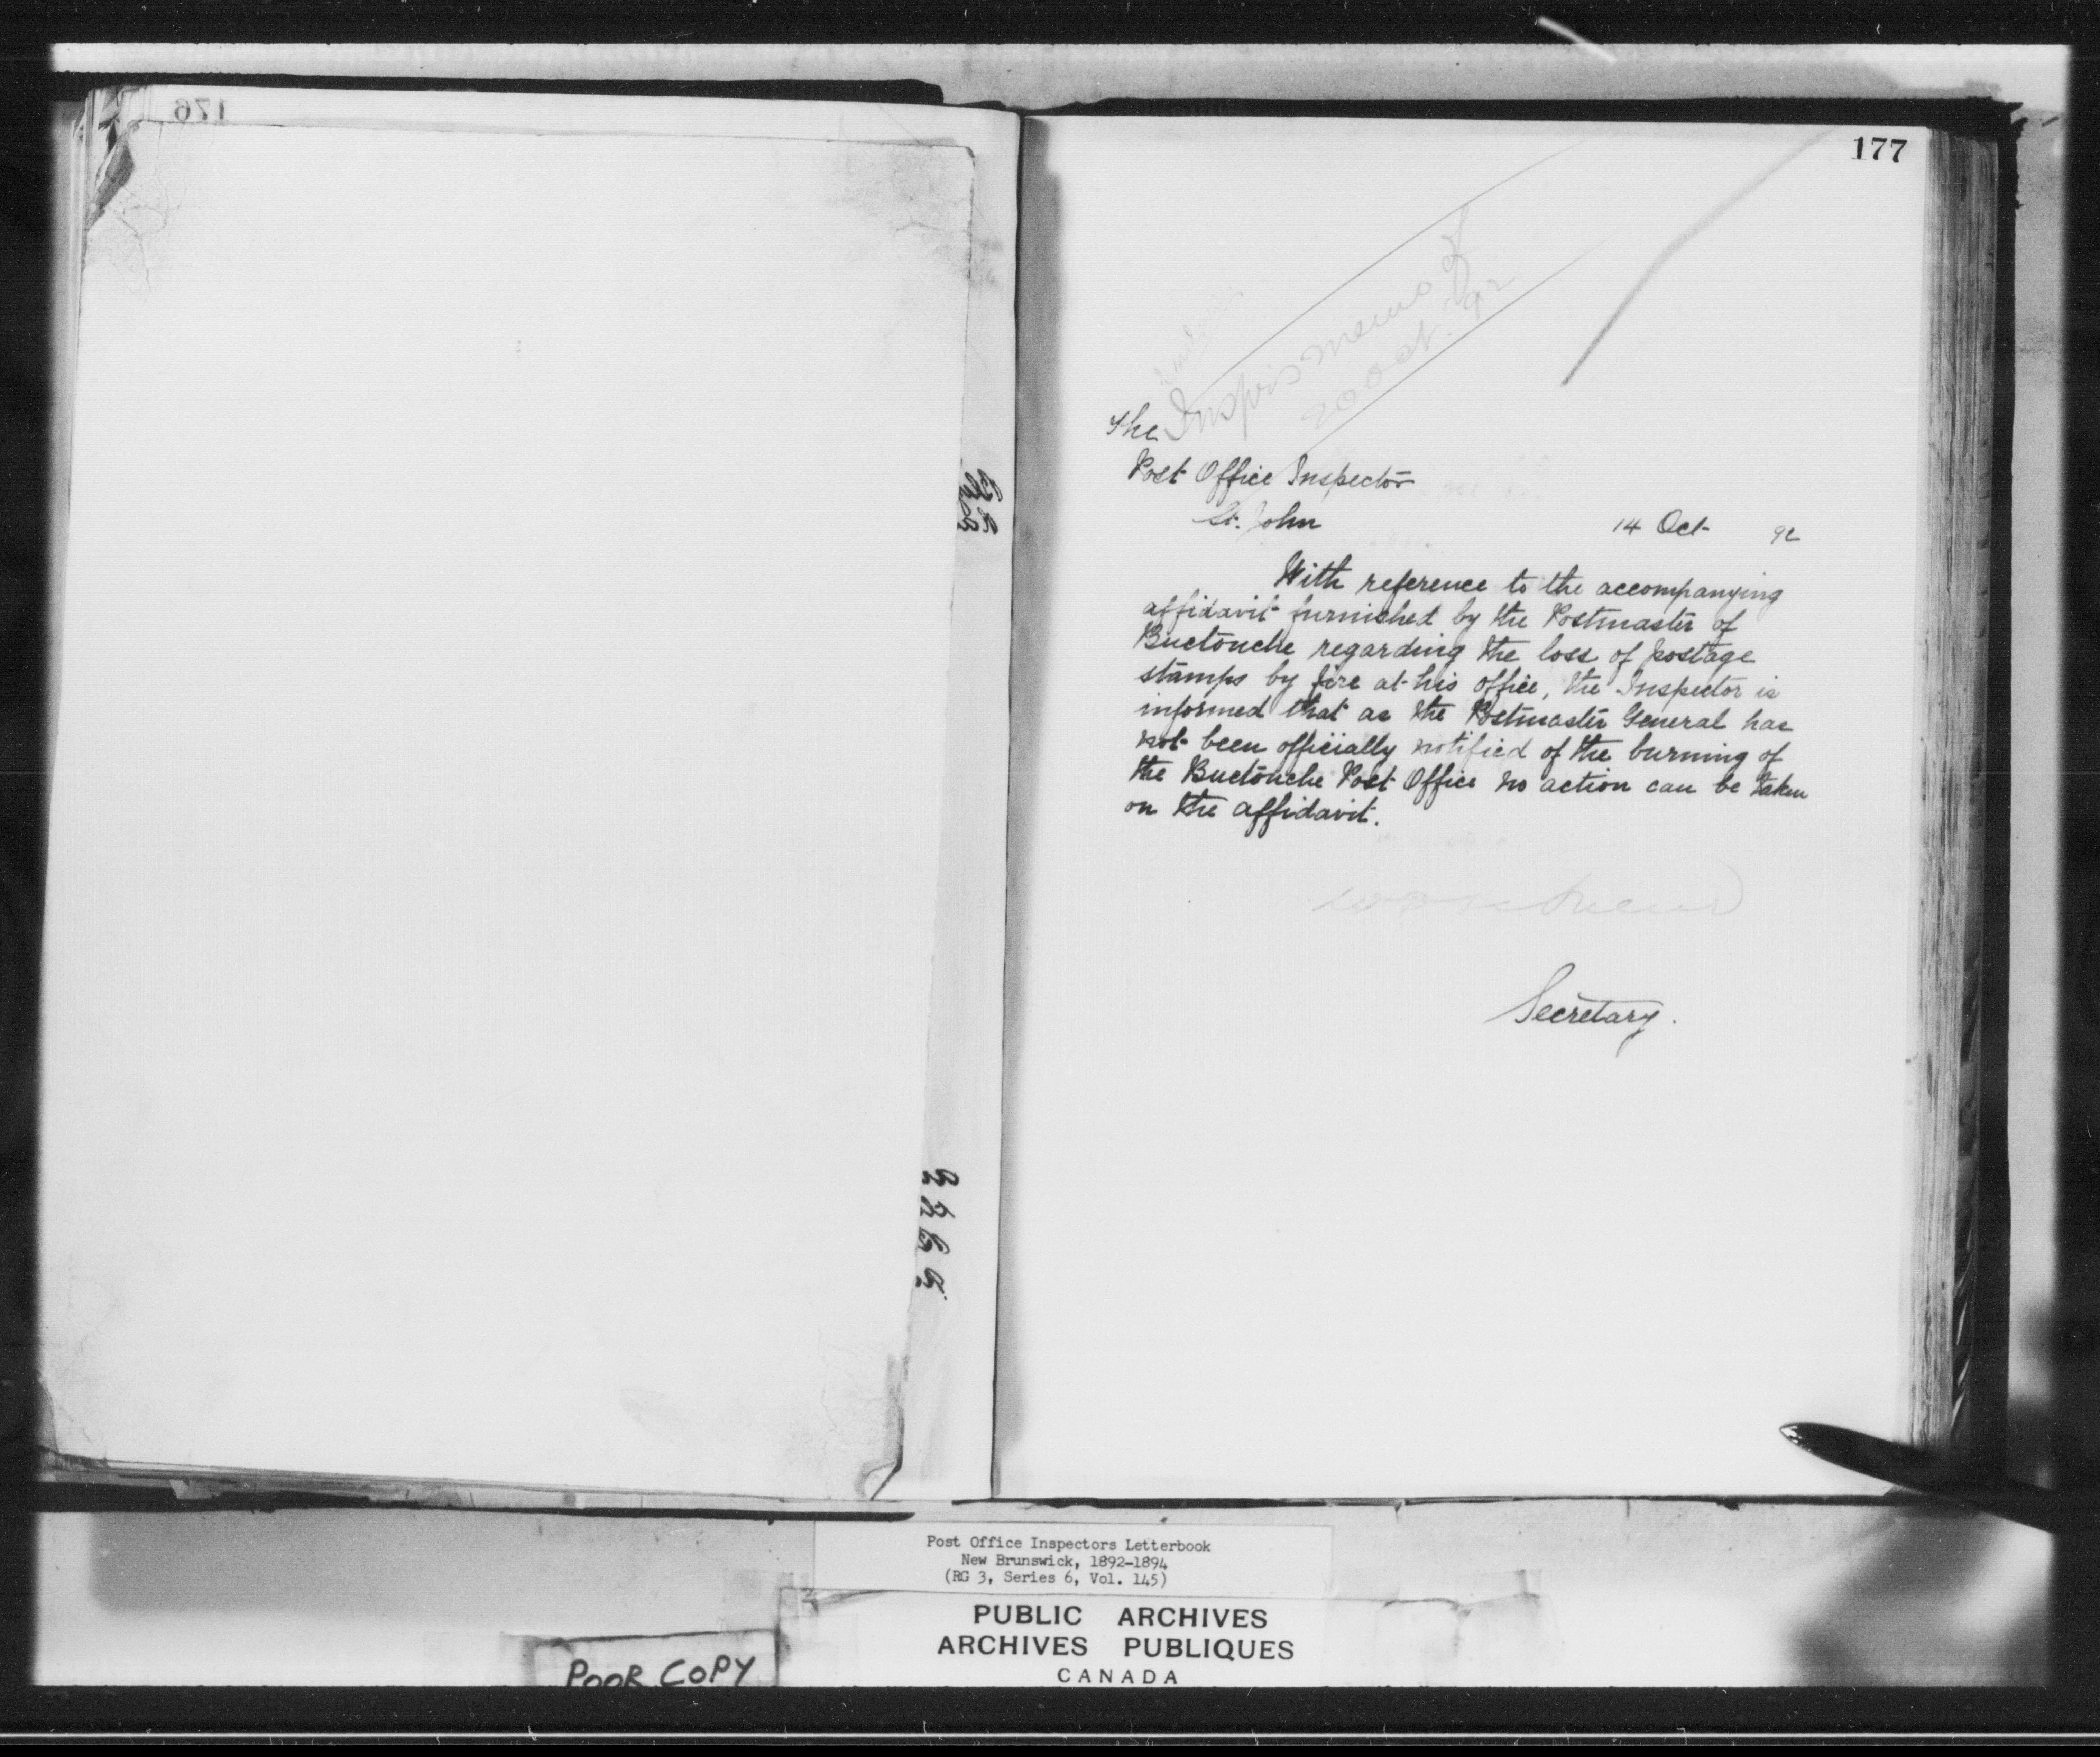 176
177
Insp'rs memo of
20 Oct. '92
The
Post Office Inspector
St. John
14 Oct 92
With reference to the accompanying
affidavit furnished by the Postmaster of
Buctouche regarding the loss of postage
stamps by fire at his office, the Inspector is
informed that as the Postmaster General has
not been officially notified of the burning of
the Buctouche Post Office no action can be taken
on the affidavit.
Secretary.
Post Office Inspectors Letterbook
New Brunswick, 1892-1894
(RG 3, Series 6, Vol. 145)
PUBLIC ARCHIVES
ARCHIVES PUBLIQUES
CANADA
POOR COPY